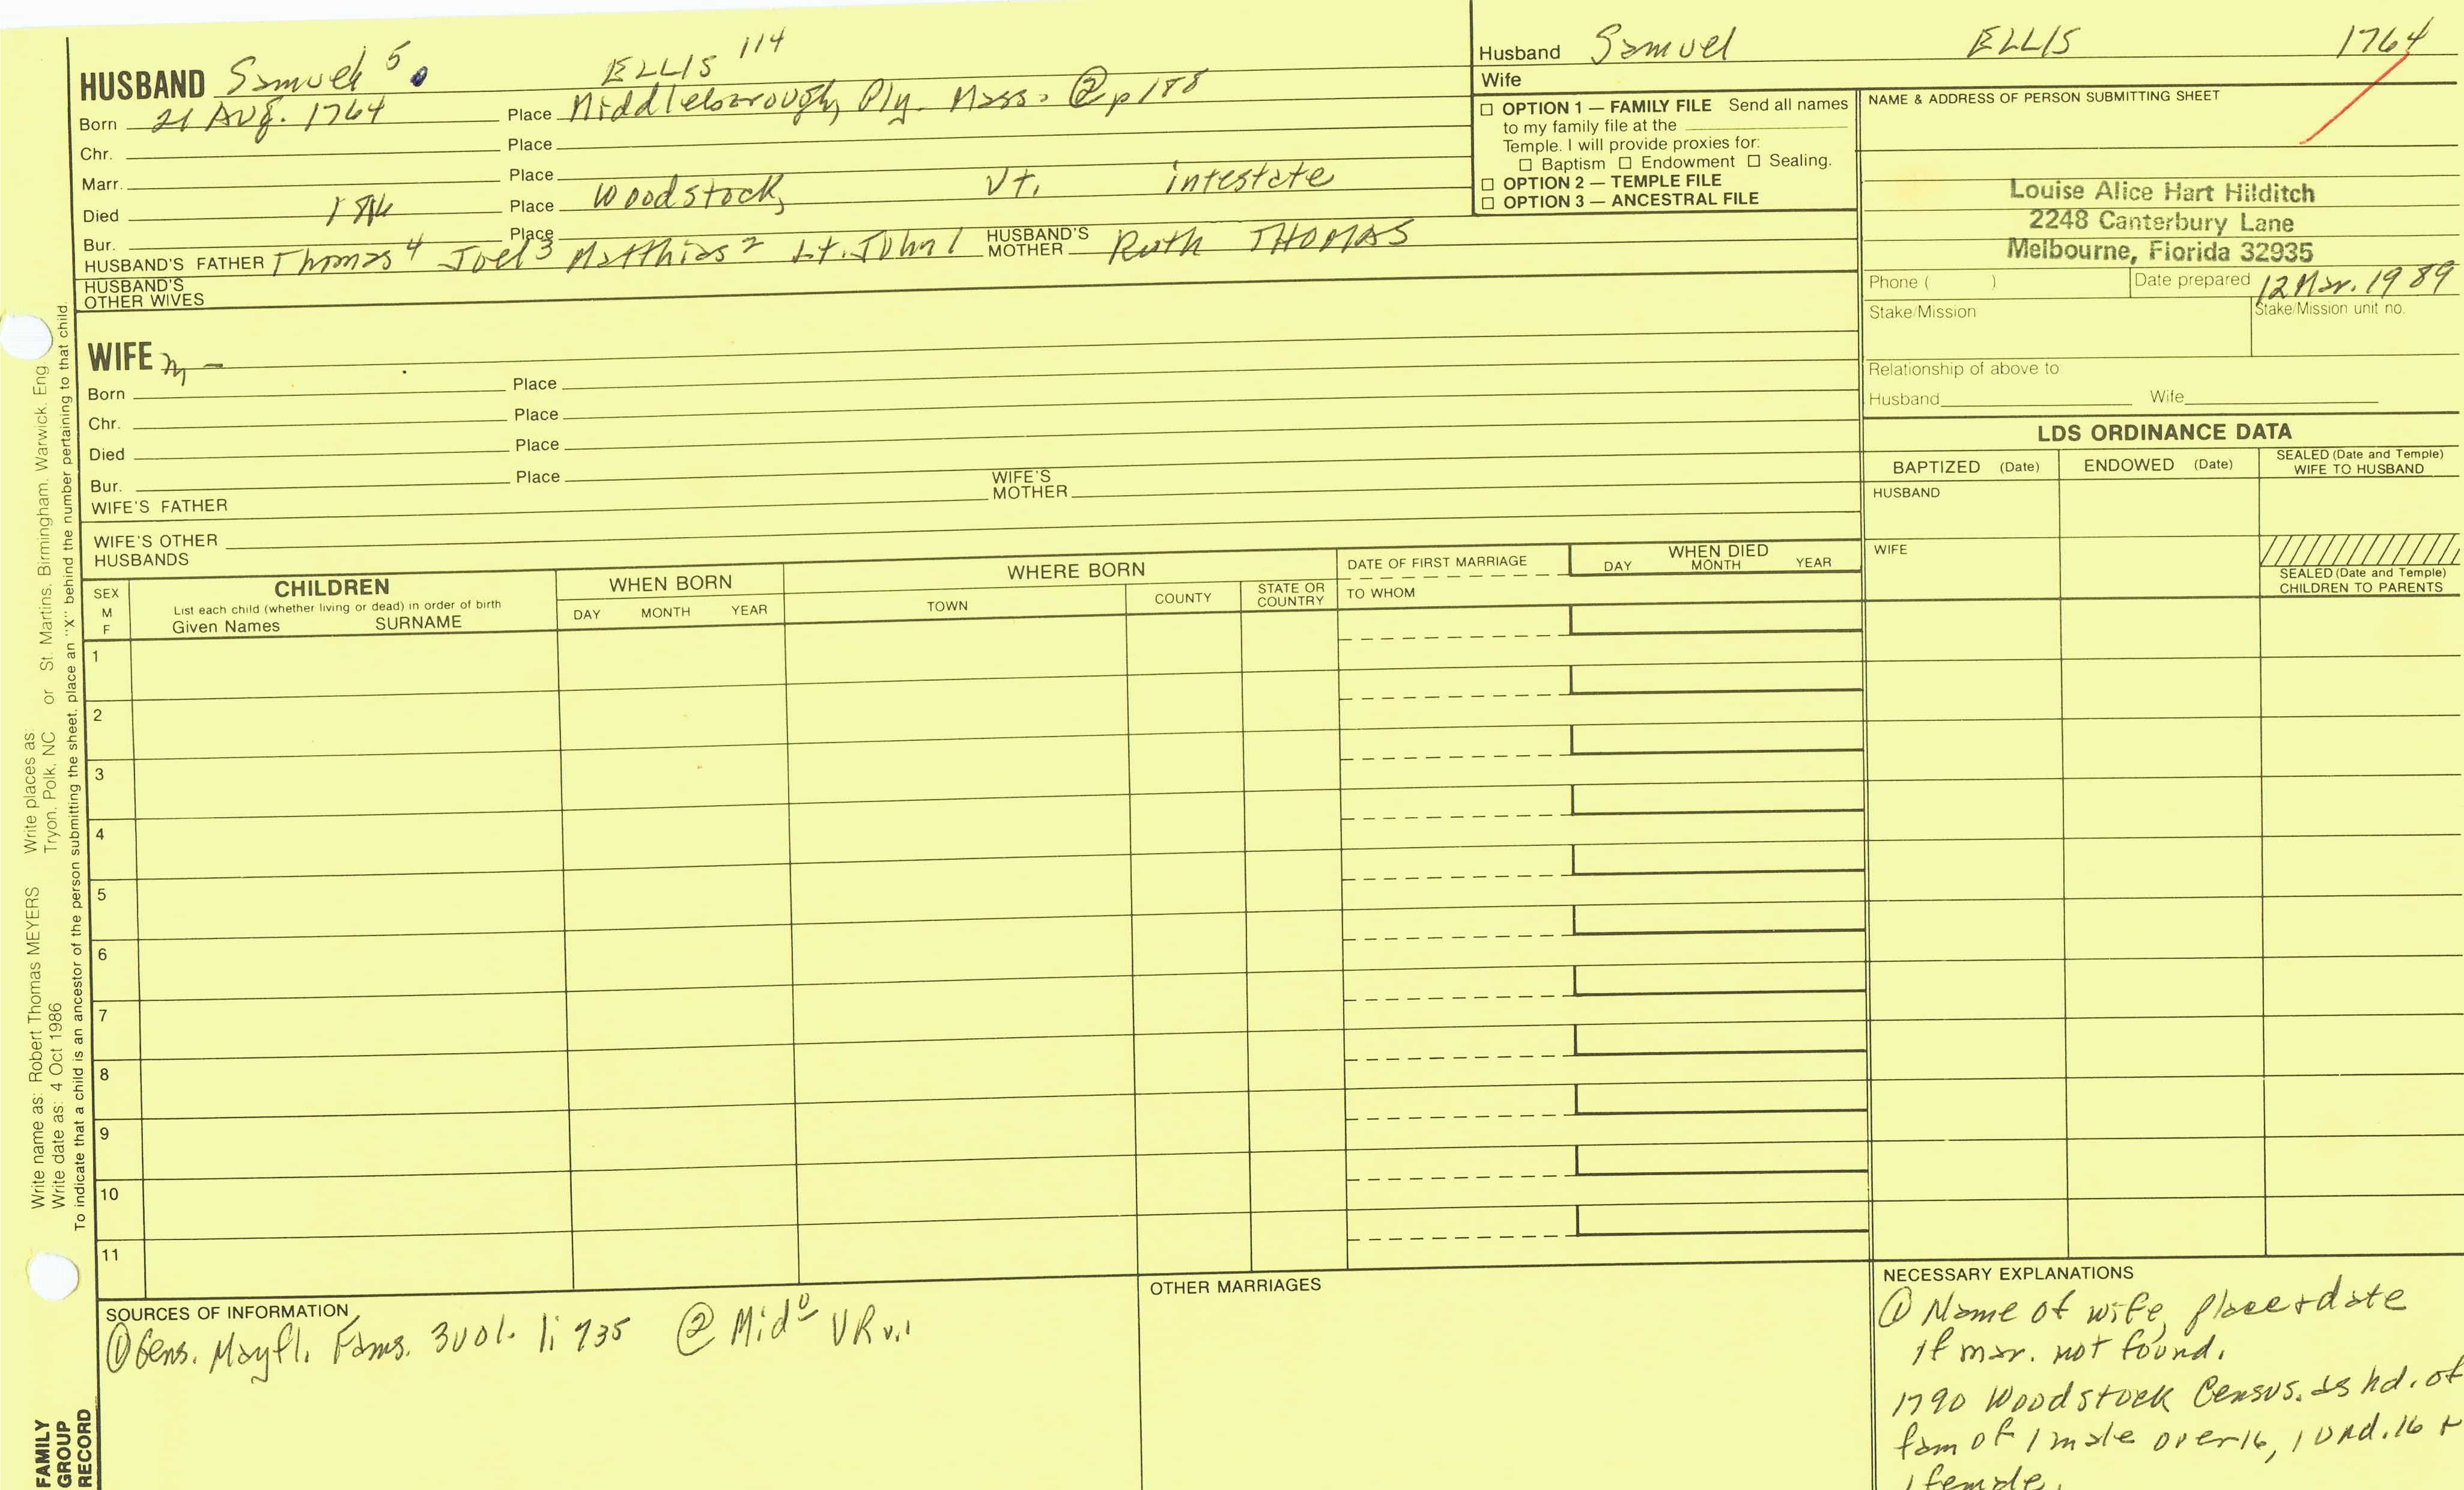 HUSBAND Samuel 5 ELLIS 114
Born 21 Aug. 1764 Place Middleborough, Ply. Mass. @ p 188
Chr. Place
Marr. Place
Died Place Woodstock, Vt. intestate
Bur. Place
HUSBAND'S FATHER Thomas 4 Joel 3 Matthias 2 Lt. John 1 HUSBAND'S MOTHER Ruth THOMAS
HUSBAND'S OTHER WIVES
WIFE m -
Born Place
Chr. Place
Died Place
Bur. Place
WIFE'S FATHER WIFE'S MOTHER
WIFE'S OTHER HUSBANDS
Husband Samuel ELLIS 1764
Wife
☐ OPTION 1 — FAMILY FILE Send all names
to my family file at the
Temple. I will provide proxies for:
☐ Baptism ☐ Endowment ☐ Sealing.
☐ OPTION 2 — TEMPLE FILE
☐ OPTION 3 — ANCESTRAL FILE
NAME & ADDRESS OF PERSON SUBMITTING SHEET
Louise Alice Hart Hilditch
2248 Canterbury Lane
Melbourne, Florida 32935
Phone ( ) Date prepared 12 Mar. 1989
Stake/Mission Stake/Mission unit no.
Relationship of above to
Husband Wife
LDS ORDINANCE DATA
BAPTIZED (Date) ENDOWED (Date) SEALED (Date and Temple) WIFE TO HUSBAND
HUSBAND
WIFE
SEALED (Date and Temple)
CHILDREN TO PARENTS
SEX
M
F
CHILDREN
List each child (whether living or dead) in order of birth
Given Names SURNAME
WHEN BORN
DAY MONTH YEAR
WHERE BORN
TOWN COUNTY STATE OR COUNTRY
DATE OF FIRST MARRIAGE
TO WHOM
WHEN DIED
DAY MONTH YEAR
1
2
3
4
5
6
7
8
9
10
11
SOURCES OF INFORMATION
① Gens. Mayfl. Fams. 3 vol. 1: 735 ② Mido VR v.1
OTHER MARRIAGES
NECESSARY EXPLANATIONS
① Name of wife, place + date
if mar. not found.
1790 Woodstock Census. as hd. of
fam of 1 male over 16, 1 und. 16 +
1 female.
Write name as: Robert Thomas MEYERS Write places as:
Write date as: 4 Oct 1986 Tryon, Polk, NC or St. Martins, Birmingham, Warwick, Eng.
To indicate that a child is an ancestor of the person submitting the sheet, place an "X" behind the number pertaining to that child.
FAMILY
GROUP
RECORD